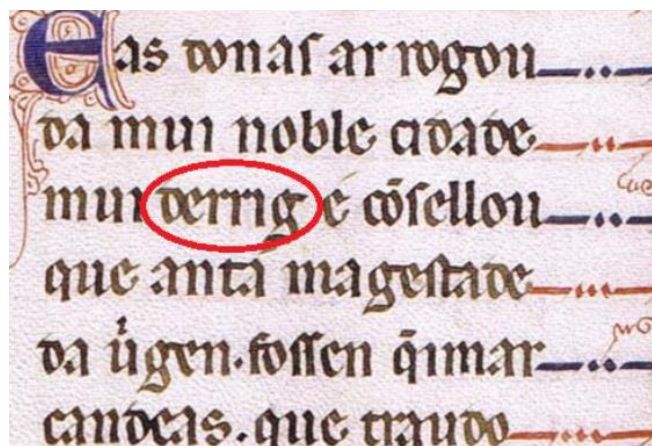 E as donas ar rogou
da mui noble cidade
mui derrig e cõsellou
que antã magestade
da ũgen. fossen q̃imar
candeas. que traudo